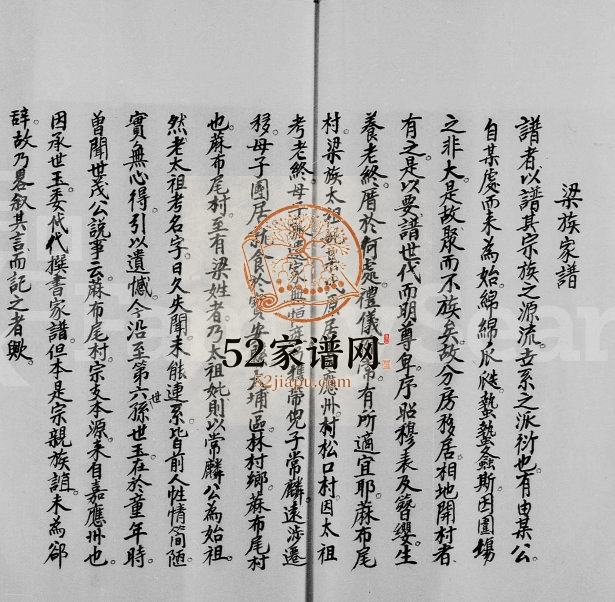 梁族家譜
譜者以譜其宗族之源流世系之派衍也有由某公
自某處而來為始綿綿瓜瓞蟄蟄螽斯因圍塲
之非大是故聚而不族矣故分房移居相地開村者
有之是以要譜世代而明尊卑序昭穆表及簪纓生
養老終厝於何處禮儀 常有所適宜耶蔴布尾
村梁族太祖 居 應州村松口村因太祖
考老終母子 家無恒 携帶兒子常麟遠涉遷
移母子團居 食於寶安 大埔區林村鄉蔴布尾村
也蔴布尾村至有梁姓者乃太祖妣則以常麟公為始祖
然老太祖考名字日久失聞未能連系皆前人性情简陋
實無心得引以遺憾今沿至第六世孫世玉在於童年時
曾聞世茂公説事云蔴布尾村宗支本源來自嘉應州也
因承世玉委代代撰書家譜但本是宗親族誼未為郤
辞故乃畧叙其言而記之者歟
52家谱网
52jiapu.com